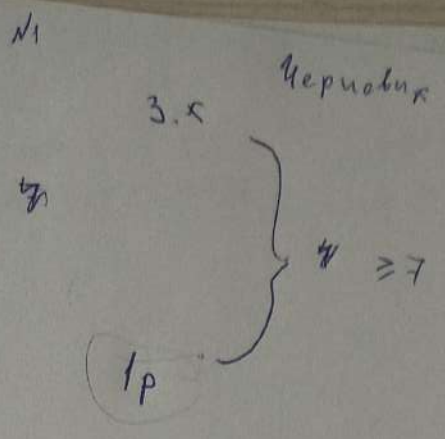 №1
Черновик
3.к
≥ 7
1р